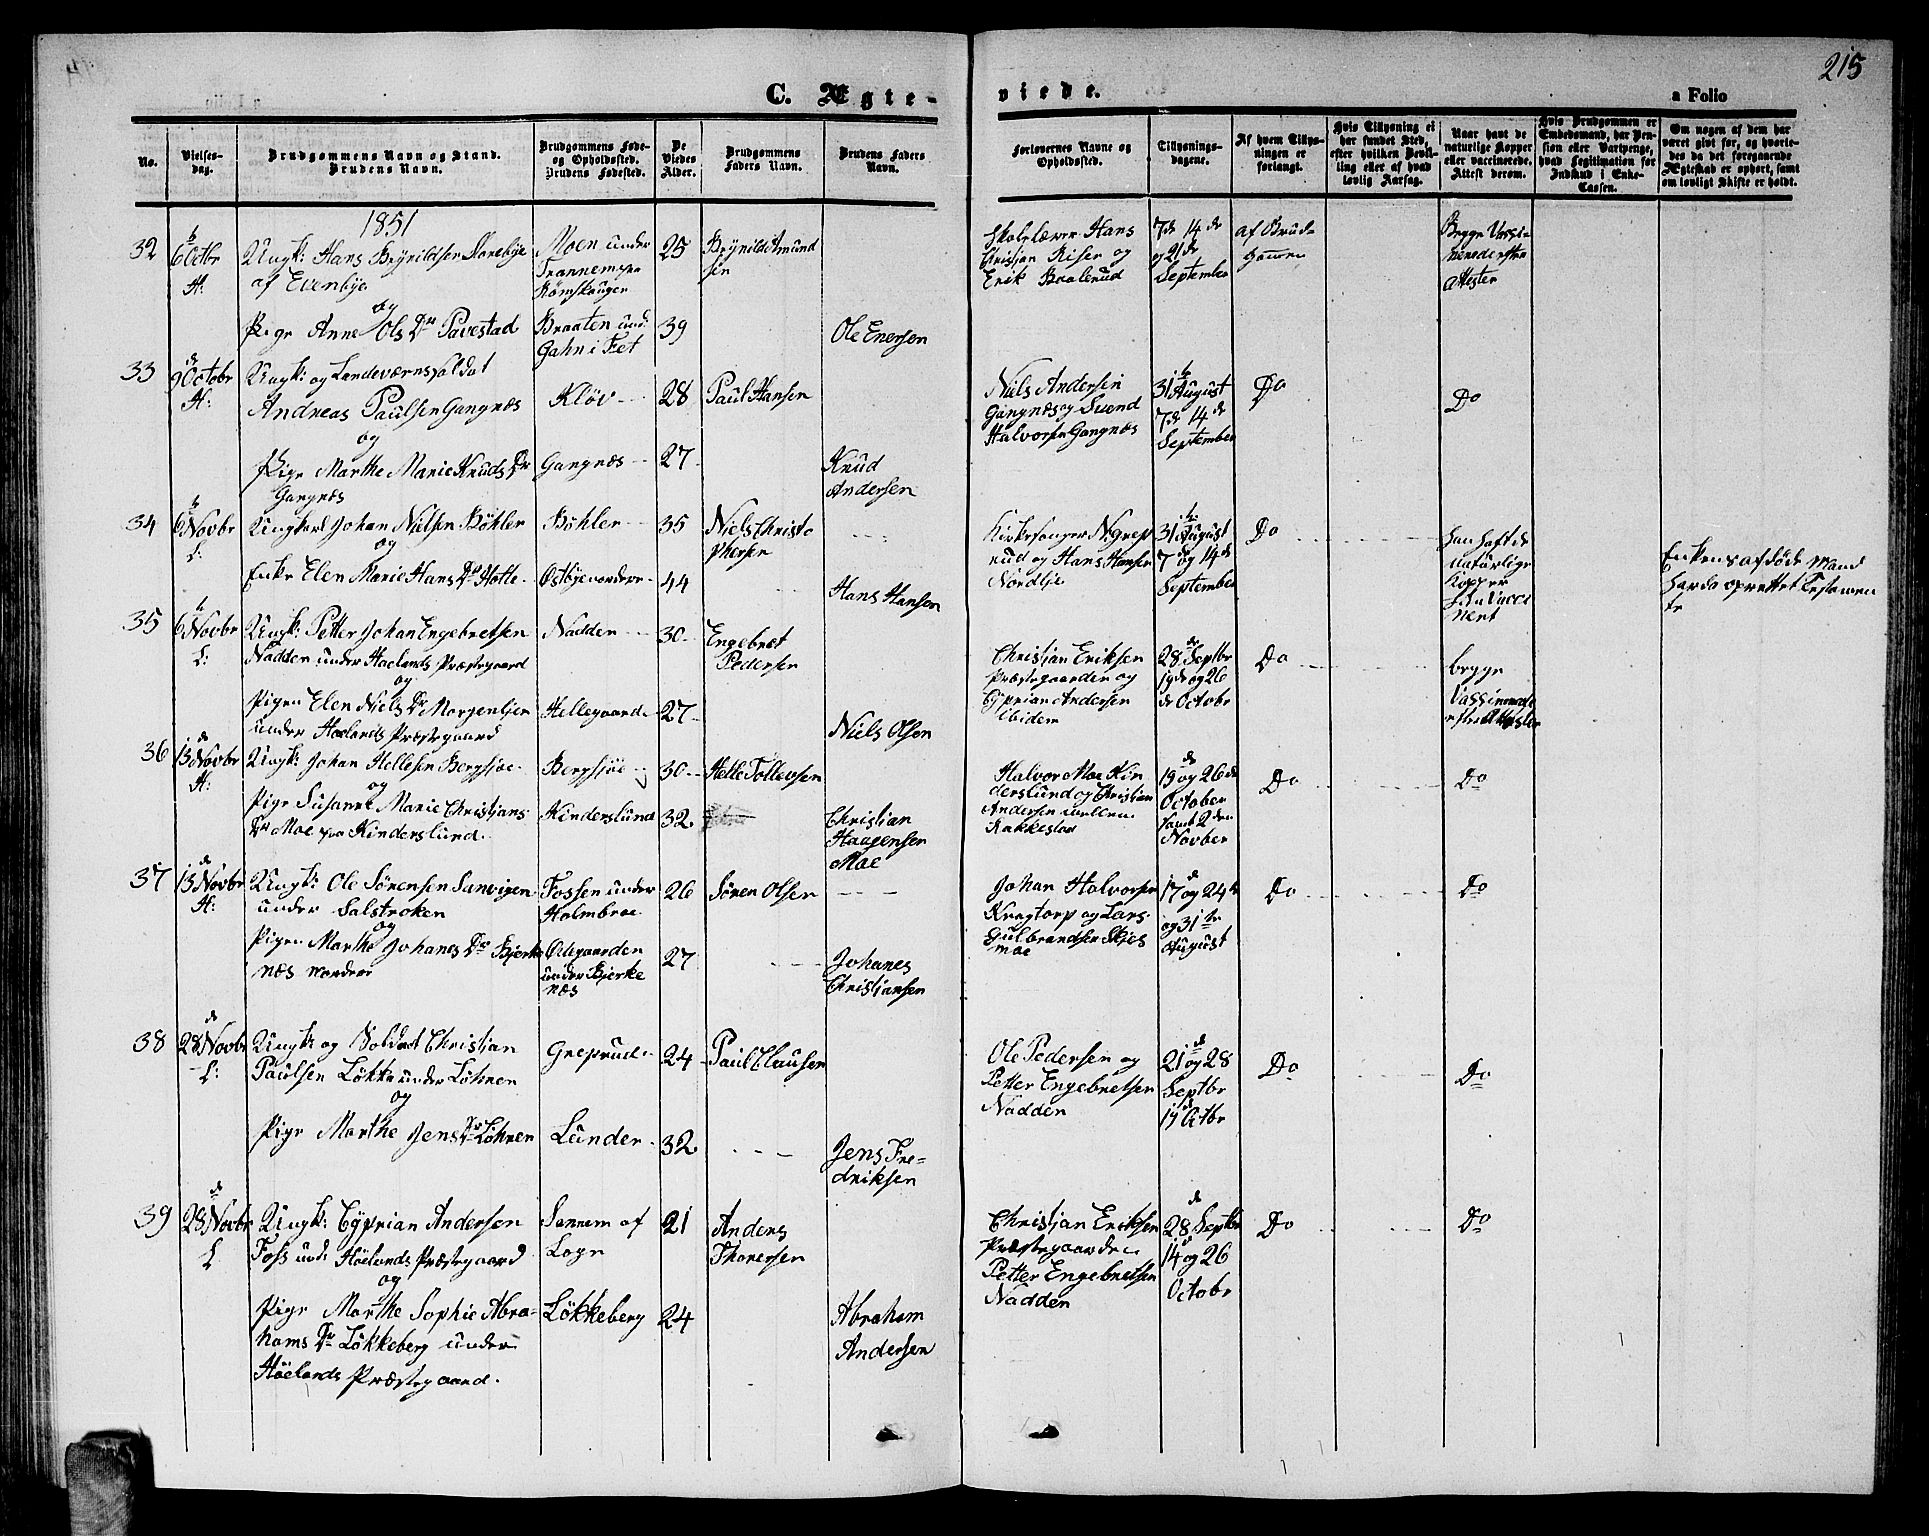 215
C. Ægte-
viede.
a Folio
No.
Vielses-
dag.
Brudgommens Navn og Stand.
Brudens Navn.
Brudgommens Føde-
og Opholdssted.
Brudens Fødested.
De
Viedes
Alder.
Brudgommens
Faders Navn.
Brudens Faders
Navn.
Forlovernes Navne og
Opholdssted.
Tillysnings-
dagene.
Af hvem Tillys-
ningen er
forlangt.
Hvis Tillysning ei
har fundet Sted,
efter hvilken Bevil-
ling eller af hvad
lovlig Aarsag.
Naar havt de
naturlige Kopper
eller vaccinerede.
Attest derom.
Hvis Brudgommen er
Embedsmand, har Pen-
sion eller Vartpenge,
hvad Legitimation for
Indskud i Enke-
Cassen.
Om nogen af dem har
været givt før, og hvorle-
des da det foregaaende
Ægteskab er ophørt, samt
om lovligt Skifte er holdt.
1851
32
6 Octbr
H:
Ungk: Hans Brynildsen
af Evenbye
og
Pige Anne Ols Dr Pavestad
Moen under
Römskougen
Braaten und:
Gahn i Fet
25
39
Brynild Amund
sen
Ole Enersen
Skolelærer Hans
Christian Riser og
Erik Braterud
7de 14de
og 21de
September
af Brud-
Begge Vassi-
Attester
33
9 Octobr
H:
Ungk: og Landeværnssoldat
Andreas Paulsen Gangnæs
og
Pige Marthe Marie Knuds Dr
Gangnæs
Kløv
Gangnæs
28
27
Paul Hansen
Knud
Andersen
Niels Andersen
Gangnæs og Svend
Halvorsen Gangnæs
31 August
7de 14de
September
Do
Do
34
6 Novbr
L:
Ungkarl Johan Nilsen Böhler
og
Enke Elen Marie Hans Dr Hotte
Böhler
Østbye nordere
35
44
Niels Christo
phersen
Hans Hansen
Kirkesanger N: Grep
rud og Hans Hansen
Nordbye
31 August
7 og 14de
September
Do
han haft de
naturlige
Kopper
hun Vacci
nert
Enkens afdøde Mand
havde oprettet Testamen
te
35
6 Novbr
L:
Ungk: Petter Johan Engebretsen
Nadden under Høelands Præstegaard
og
Pigen Elen Niels Dr Morgenstjer
under Høelands Præstegaard
Nadden
Hellegaard
30
27
Engebret
Pedersen
Niels Olsen
Christian Eriksen
Præstegaarden og
Cyprian Andersen
ibidem
28 Septbr
19de og 26
de Octobr
Do
begge
Vassinerede
efter Attester
36
13 Novbr
H:
Ungk: Johan Hellesen Bergsjøe
og
Pige Susanne Marie Christians
Dr Moe fra Kinderslund
Bergsjøe
Kinderslund
30
32
Helle Tollevsen
Christian
Haagensen
Moe
Halvor Moe Kin
derslund og Christian
Andersen mellem
Rakkestad
19 og 26 de
October
samt 2 den
Novber
Do
Do
37
13 Novbr
H:
Ungk: Ole Sörensen Sanvigen
under Solstroken
og
Pigen Marthe Johanes Dr Bjerke
næs nordre
Fossen under
Holmbroe
Ödegaarden
under Bjerke
næs
26
27
Sören Olsen
Johanes
Christjansen
Johan Halvorsen
Kragtorp og Lars
Gulbrandsen Skjes
moe
17 og 24 de
og 31 te
August
Do
Do
38
28 Novbr
L:
Ungk: og Soldat Christian
Paulsen Lökke under Löhren
og
Pige Marthe Jens Dr Löhren
Greprud
Lunder
24
32
Paul Clausen
Jens Fre=
driksen
Ole Pedersen og
Petter Engebretsen
Nadden
21 og 28
Septbr
19 Octbr
Do
Do
39
28 Novbr
L
Ungk: Cyprian Andersen
Foss und: Höelands Præstegaard
og
Pige Marthe Sophie Abra-
hams Dr Lökkeberg under
Höelands Præstegaard.
Sonnem af
Sogn
Lökkeberg
21
24
Anders
Thoresen
Abraham
Andersen
Christjan Eriksen
Præstegaarden
Petter Engebretsen
Nadden
28 Septbr
14 og 26
Octobr
Do
Do